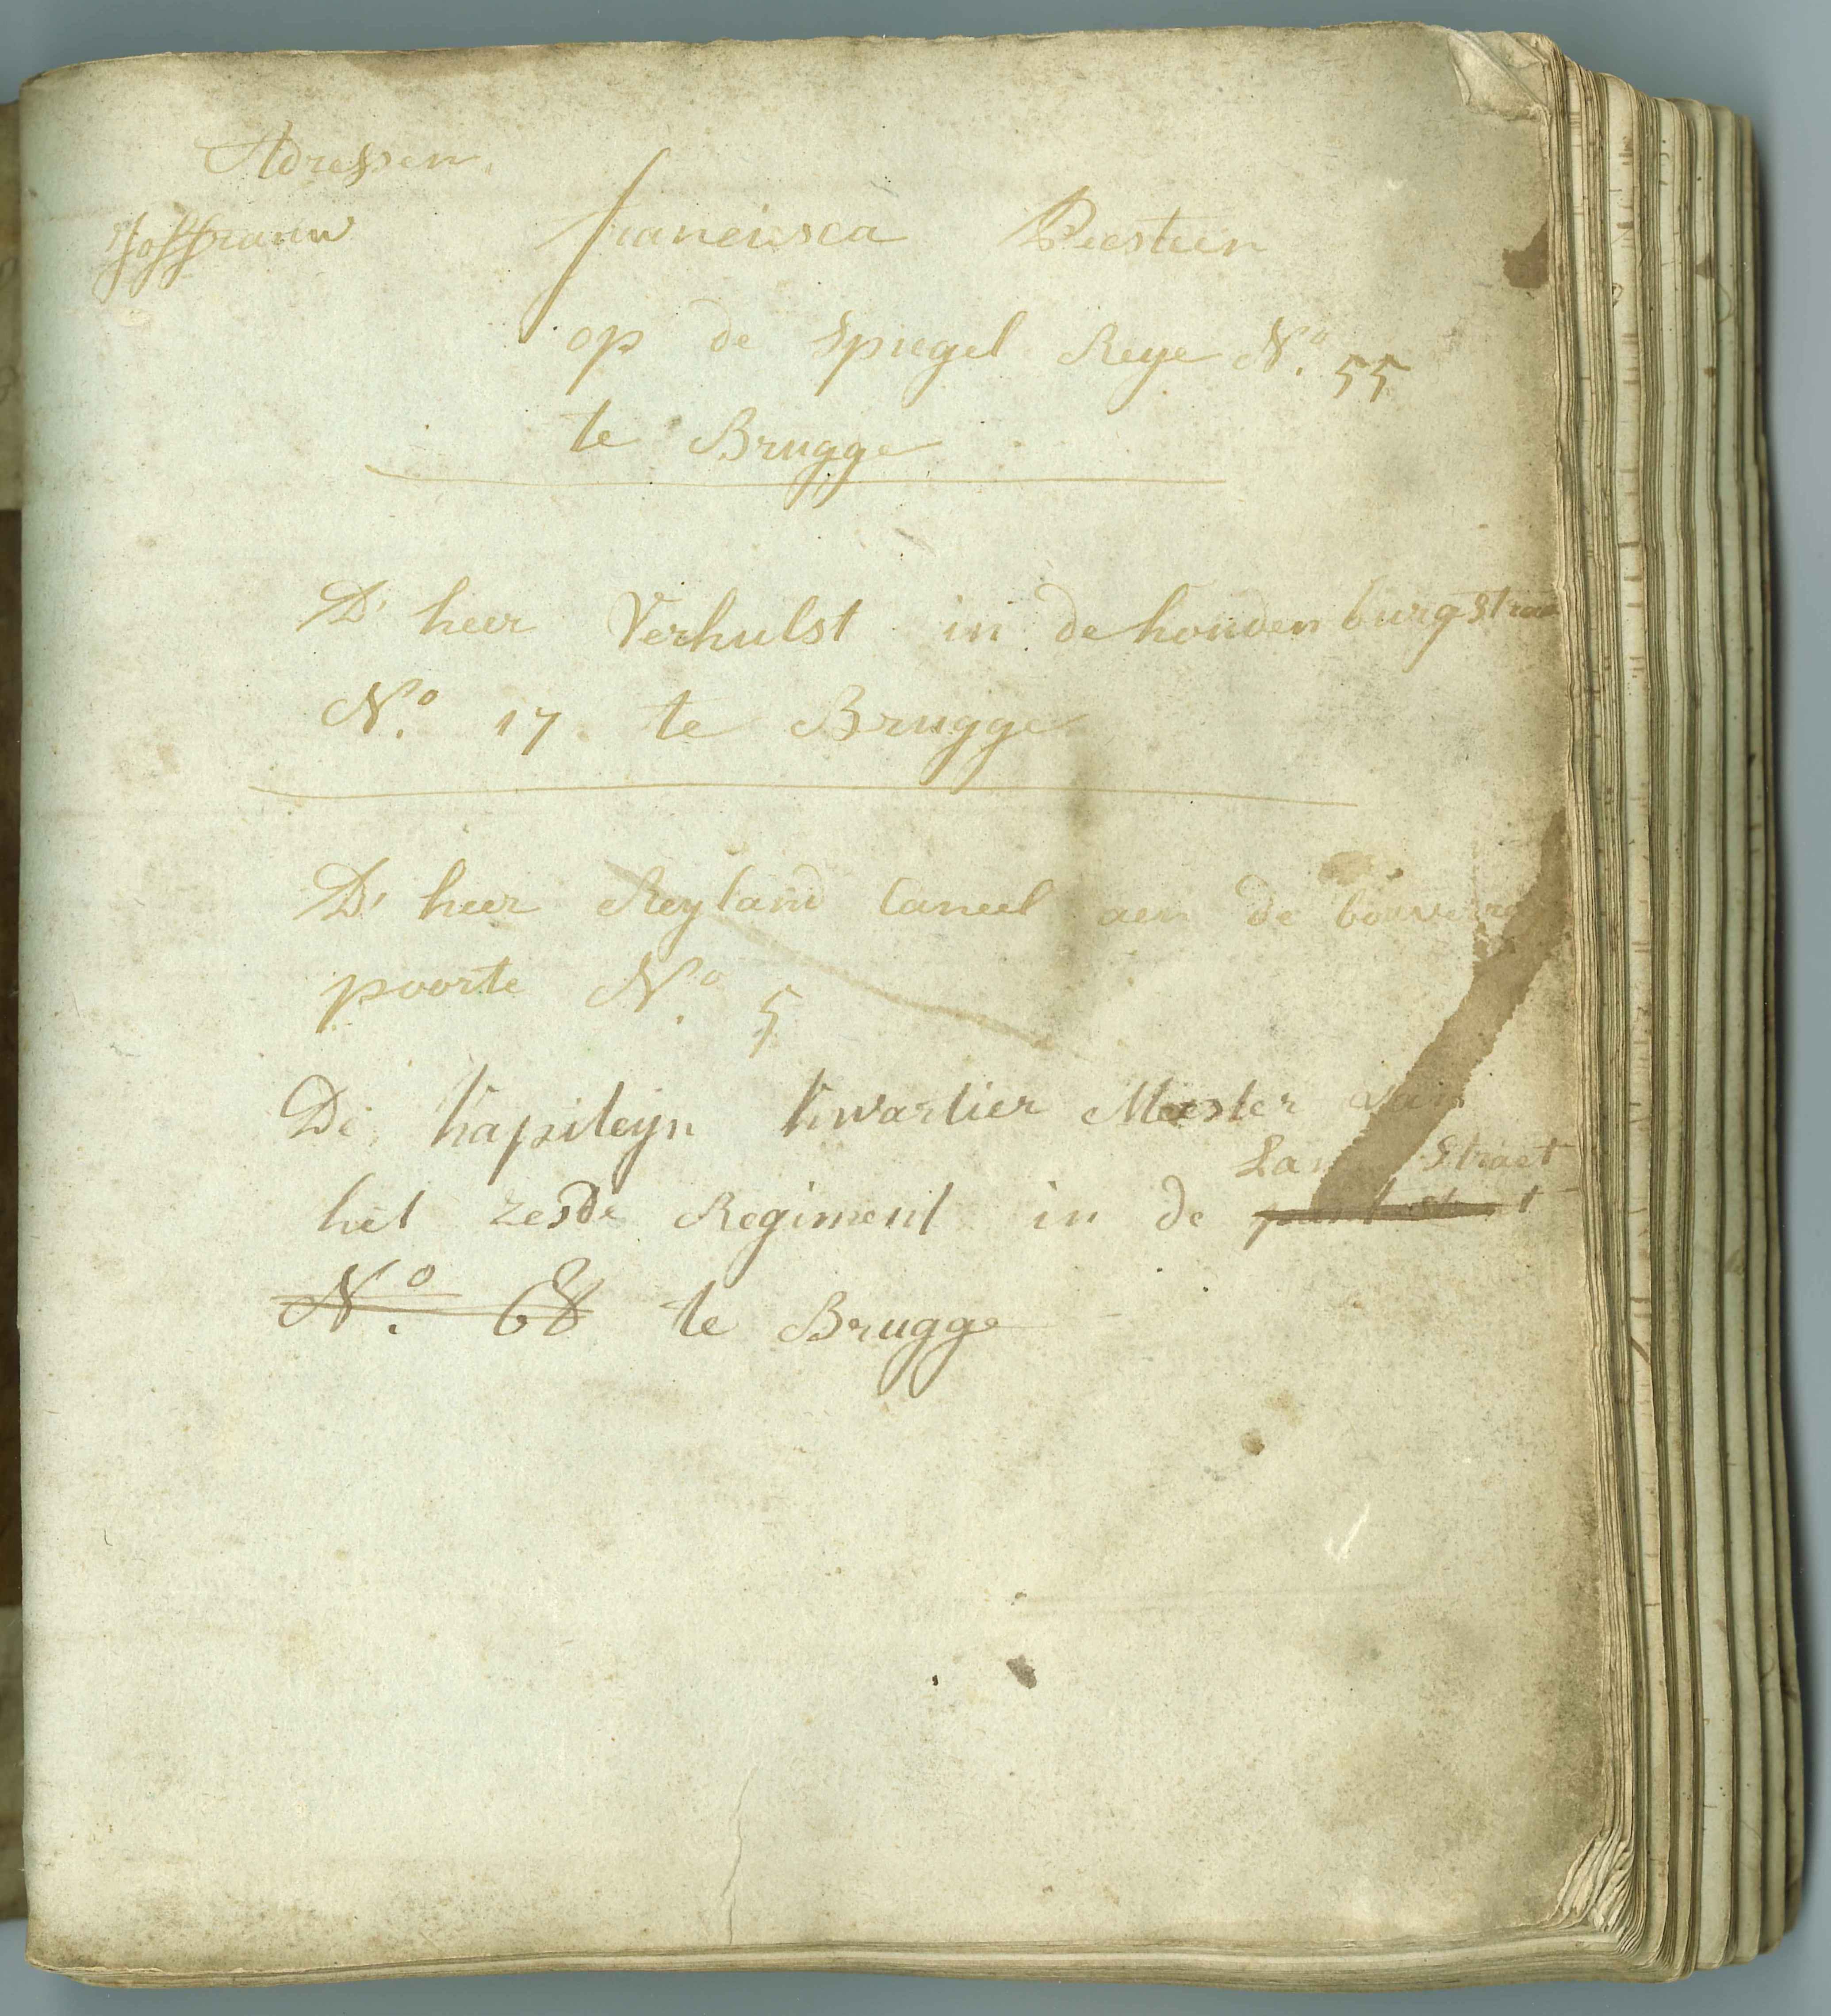 Adressen
Joffrauw francisca Peesteen
op de Spiegel Reye N.º 55
te Brugge
D' heer Verhulst in de houdenburgstraet
N.º 17 te Brugge
D' heer Reyland Caneel aen de bouverye
poorte N.º 5
De Kapiteyn Kwartier Meester van
Lange Straet
het zesde Regiment in de
N.º 68 te Brugge